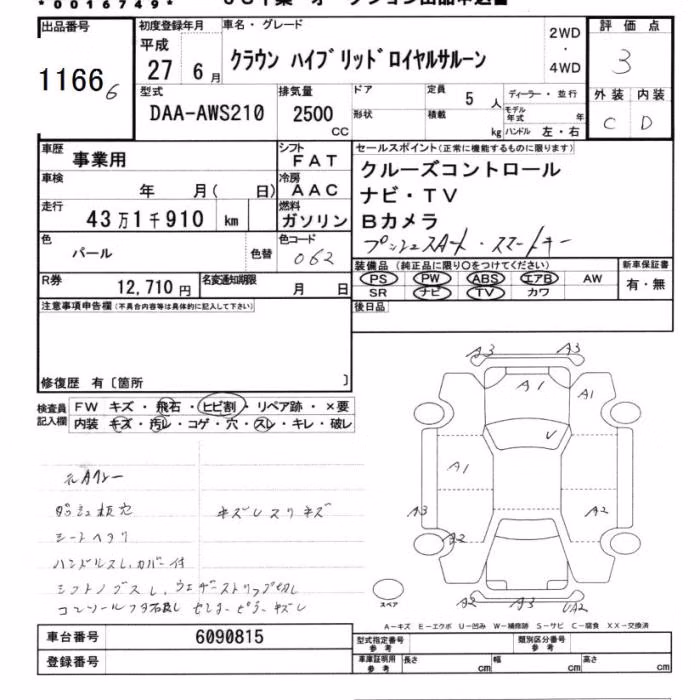 *0016749*
出品番号
1166 6
初度登録年月
平成
27 6月
車名・グレード
クラウン ハイブリッドロイヤルサルーン
2WD
・
4WD
評価点
3
外装 内装
C D
型式
DAA-AWS210
排気量
2500
CC
ドア
形状
定員
5 人
積載
kg
ディーラー・並行
モデル年式 年
ハンドル 左・右
車歴
事業用
シフト
FAT
車検
年 月( 日)
冷房
AAC
走行
43万1千910 km
燃料
ガソリン
色
パール
色替
色コード
062
R券
12,710円
名変通知期限
月 日
セールスポイント(正常に機能するものに限ります)
クルーズコントロール
ナビ・TV
Bカメラ
プッシュスタート・スマートキー
装備品 (純正品に限り○をつけてください)
PS PW ABS エアB AW
SR ナビ TV カワ
新車保証書
有・無
後日品
注意事項申告欄(不具合内容等は具体的に記入して下さい)
修復歴 有〔箇所 〕
検査員記入欄
FW キズ・飛石・ヒビ割・リペア跡・×要
内装 キズ・汚レ・コゲ・穴・スレ・キレ・破レ
元タクシー
シートヘタリ
キズレスリキズ
ハンドルスレ、カバー付
A3 A3
A1 A1
V
A1
A3 A2
A2
A2 A3 UA2
スペア
A-キズ E-エクボ U-凹み W-補修跡 S-サビ C-腐食 XX-交換済
車台番号
6090815
登録番号
型式指定番号
参考
類別区分番号
参考
車庫証明用
参考
長さ cm
幅 cm
高さ cm